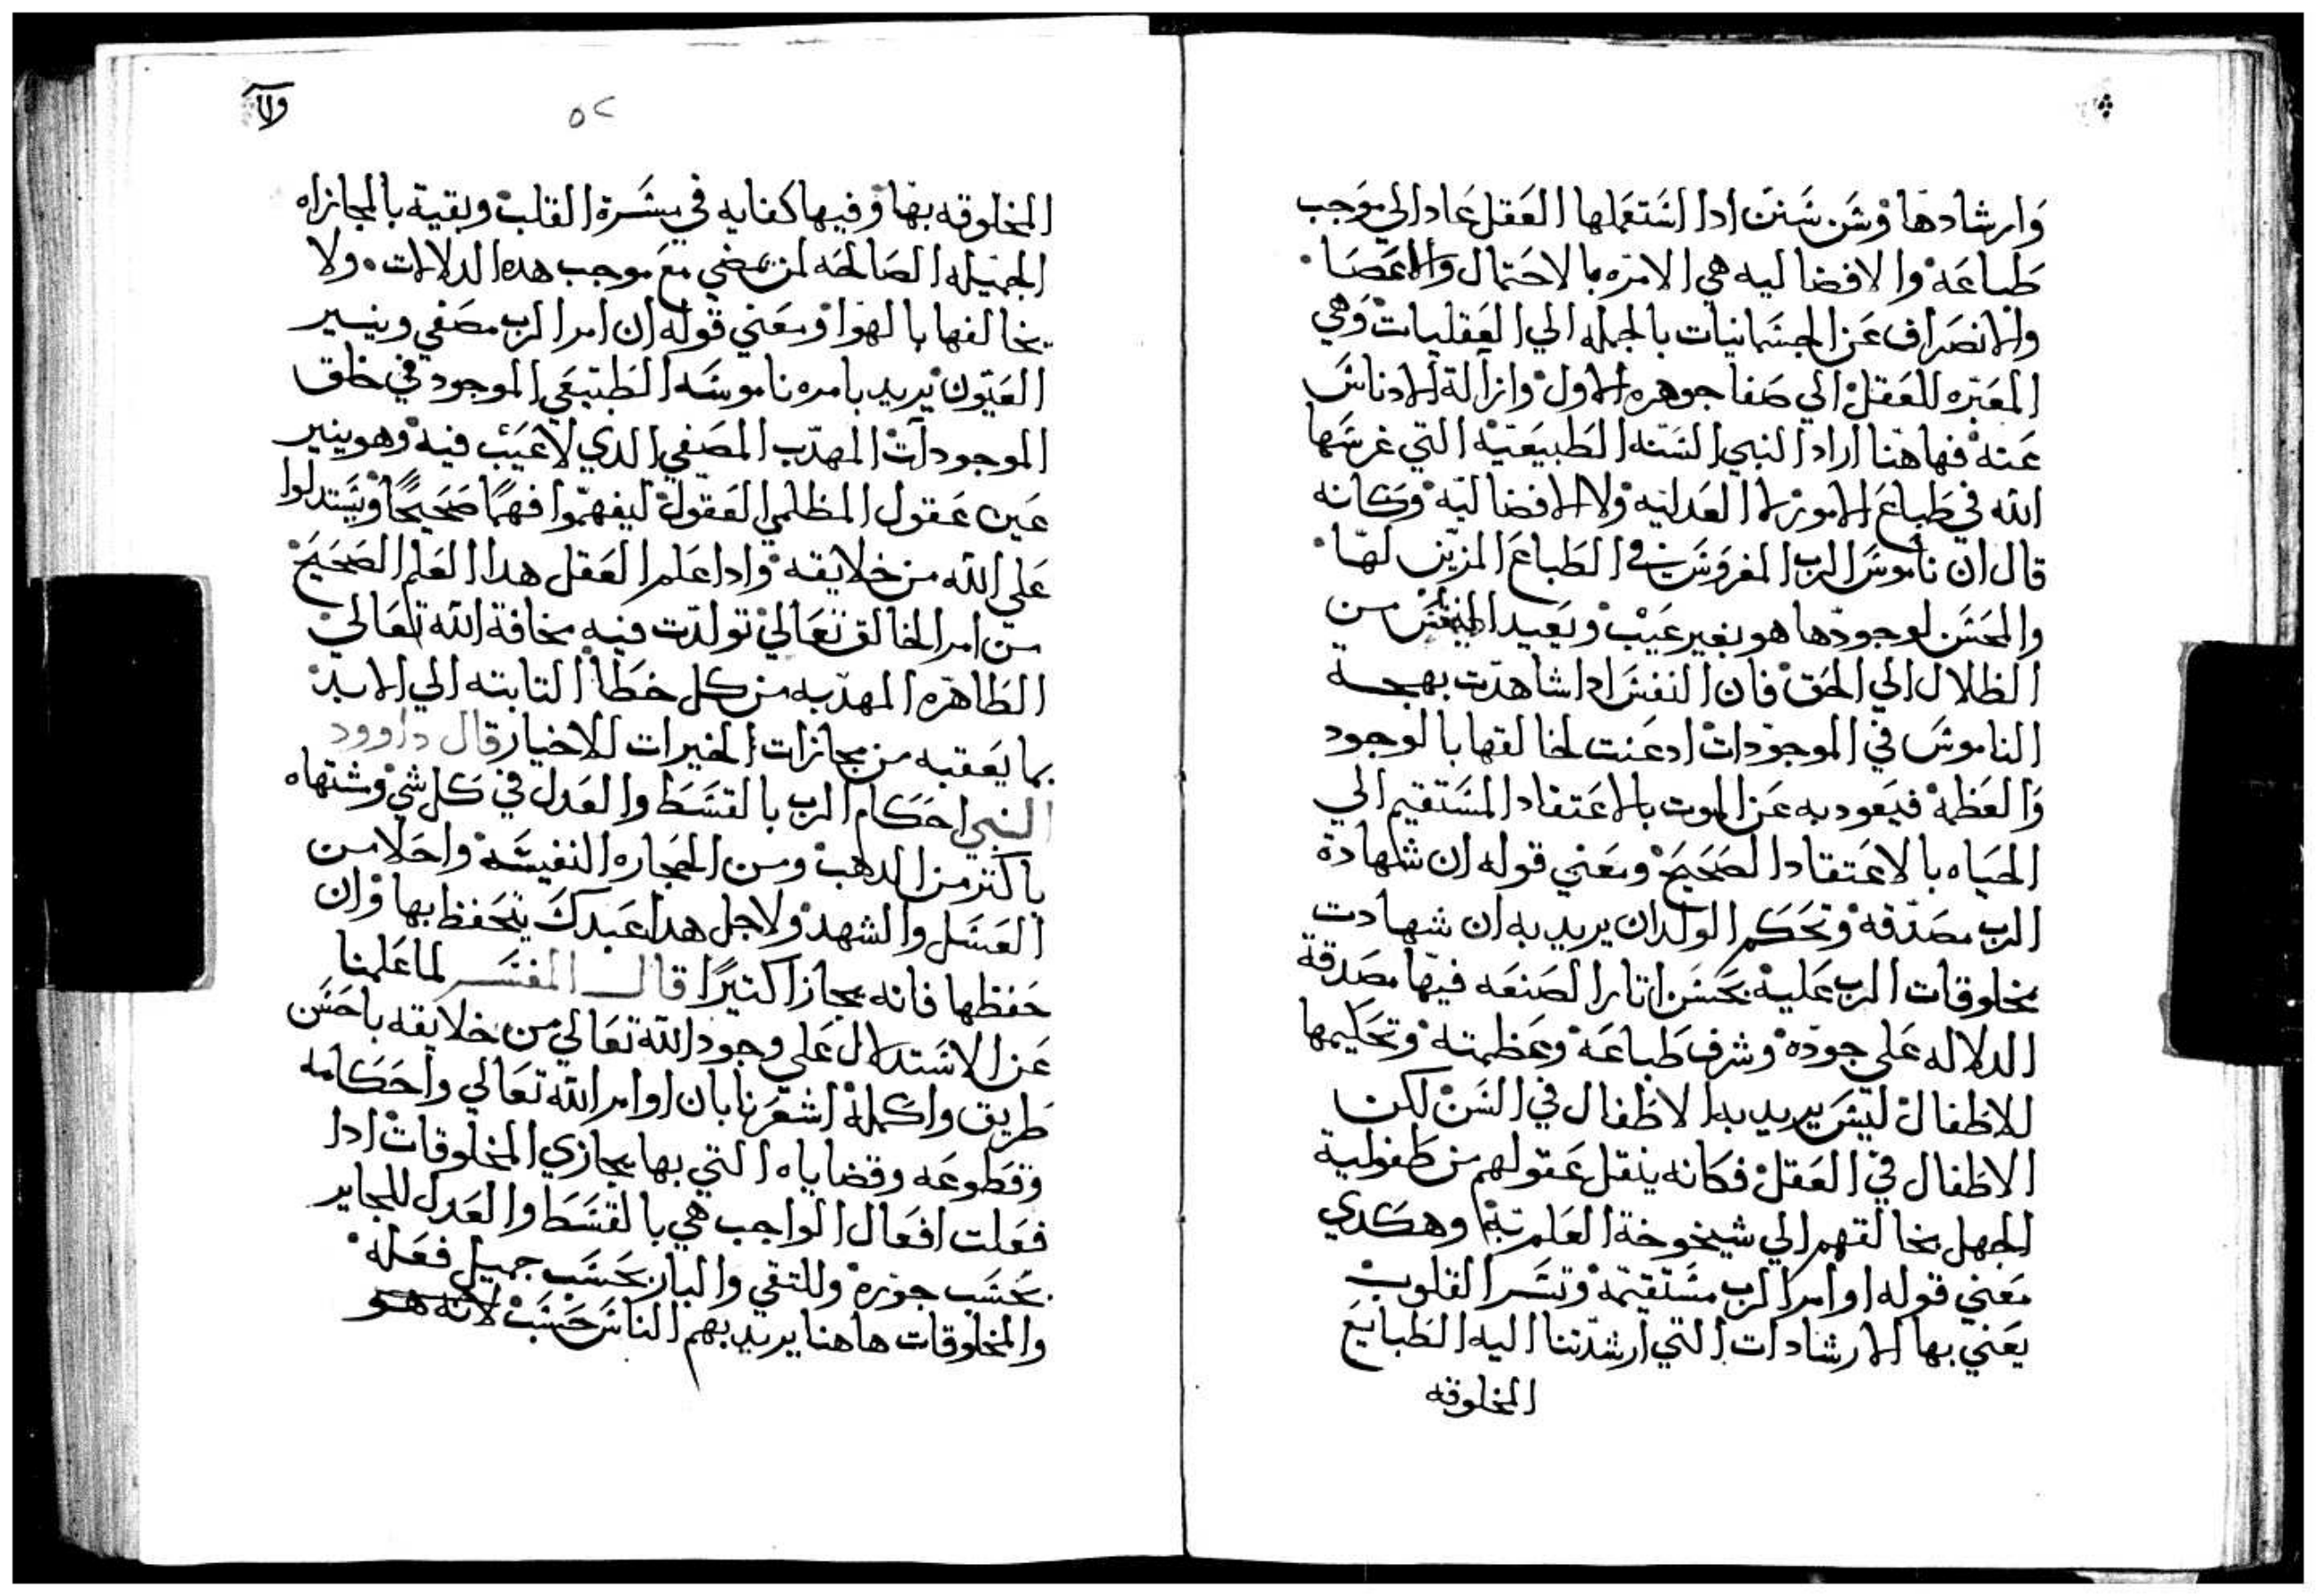 وارشادها وسن سنن ادا استعملها العقل عاد الي موجب
طباعه والافضاليه هي الامره بالاحتمال والاعضا
والانصراف عن الجسمانيات بالجمله الي العقليات وهي
المعبره للعقل الي صفا جوهره الاول وازالة الادناس
عنه فهاهنا اراد النبي السنه الطبيعيه التي غرسها
الله في طباع الامور لا العدليه ولا الافضاليه وكانه
قال ان ناموس الرب المغروس في الطباع المزين لها
والمحسن لوجودها هو بغير عيب ويعيد النفس من
الظلال الي الحق فان النفس ادا شاهدت بهجة
الناموس في الموجودات ادعنت لخالقها بالوجود
والعظمه فيعود به عن الموت بالاعتقاد المستقيم الي
الحياه بالاعتقاد الصحيح ومعني قوله ان شهادة
الرب مصدقه وتحكم الولدان يريد به ان شهادت
مخلوقات الرب عليه بحسن اتار الصنعه فيها مصدقة
الدلاله علي جوده وشرف طباعه وعظمته وتحكيمها
للاطفال ليس يريد به الاطفال في السن لكن
الاطفال في العقل فكانه ينقل عقولهم من طفولية
الجهل بخالقهم الي شيخوخة العلم به وهكدي
معني قوله اوامر الرب مستقيمه وتسر القلوب
يعني بها الارشادات التي ارشدتنا اليه الطبايع
المخلوقه
ولا
٥٢
المخلوقه بها وفيها كفايه في مسرة القلب وبقية بالمجازاه
الجميله الصالحه لمن يمضي مع موجب هده الدلالات ولا
يخالفها بالهوا ومعني قوله ان امر الرب مصفي وينير
العيون يريد بامره ناموسه الطبيعي الموجود في خلق
الموجودات المهدب المصفي الدي لا عيب فيه وهو ينير
عين عقول المظلمي العقول ليفهموا فهمًا صحيحًا ويستدلوا
علي الله من خلايقه وادا علم العقل هدا العلم الصحيح
من امر الخالق تعالي تولدت فيه مخافة الله تعالي
الطاهره المهدبه من كل خطا التابته الي الابد
بما يعقبه من مجازات الخيرات للاخيار قال داوود
النبي احكام الرب بالقسط والعدل في كل شي وشتهاه
باكتر من الدهب ومن الحجاره النفيسه واحلا من
العسل والشهد ولاجل هدا عبدك يتحفظ بها وان
حفظها فانه يجازا كتيرًا قال المفسر لما علمنا
عن الاستدلال علي وجود الله تعالي من خلايقه باحسن
طريق واكمله اشعرنا بان اوامر الله تعالي واحكامه
وقطوعه وقضاياه التي بها يجازي المخلوقات ادا
فعلت افعال الواجب هي بالقسط والعدل للجاير
بحسب جوره وللتقي والبار بحسب جميل فعله
والمخلوقات هاهنا يريد بهم الناس حسب لانه هو